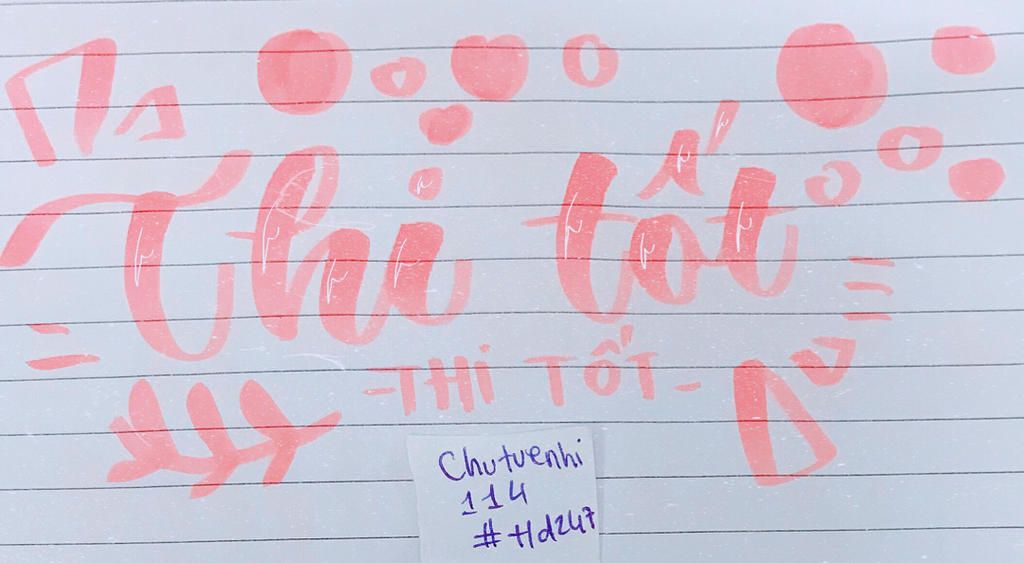 Thi tốt
-THi TỐT-
Chutuenhi
114
#Hd247